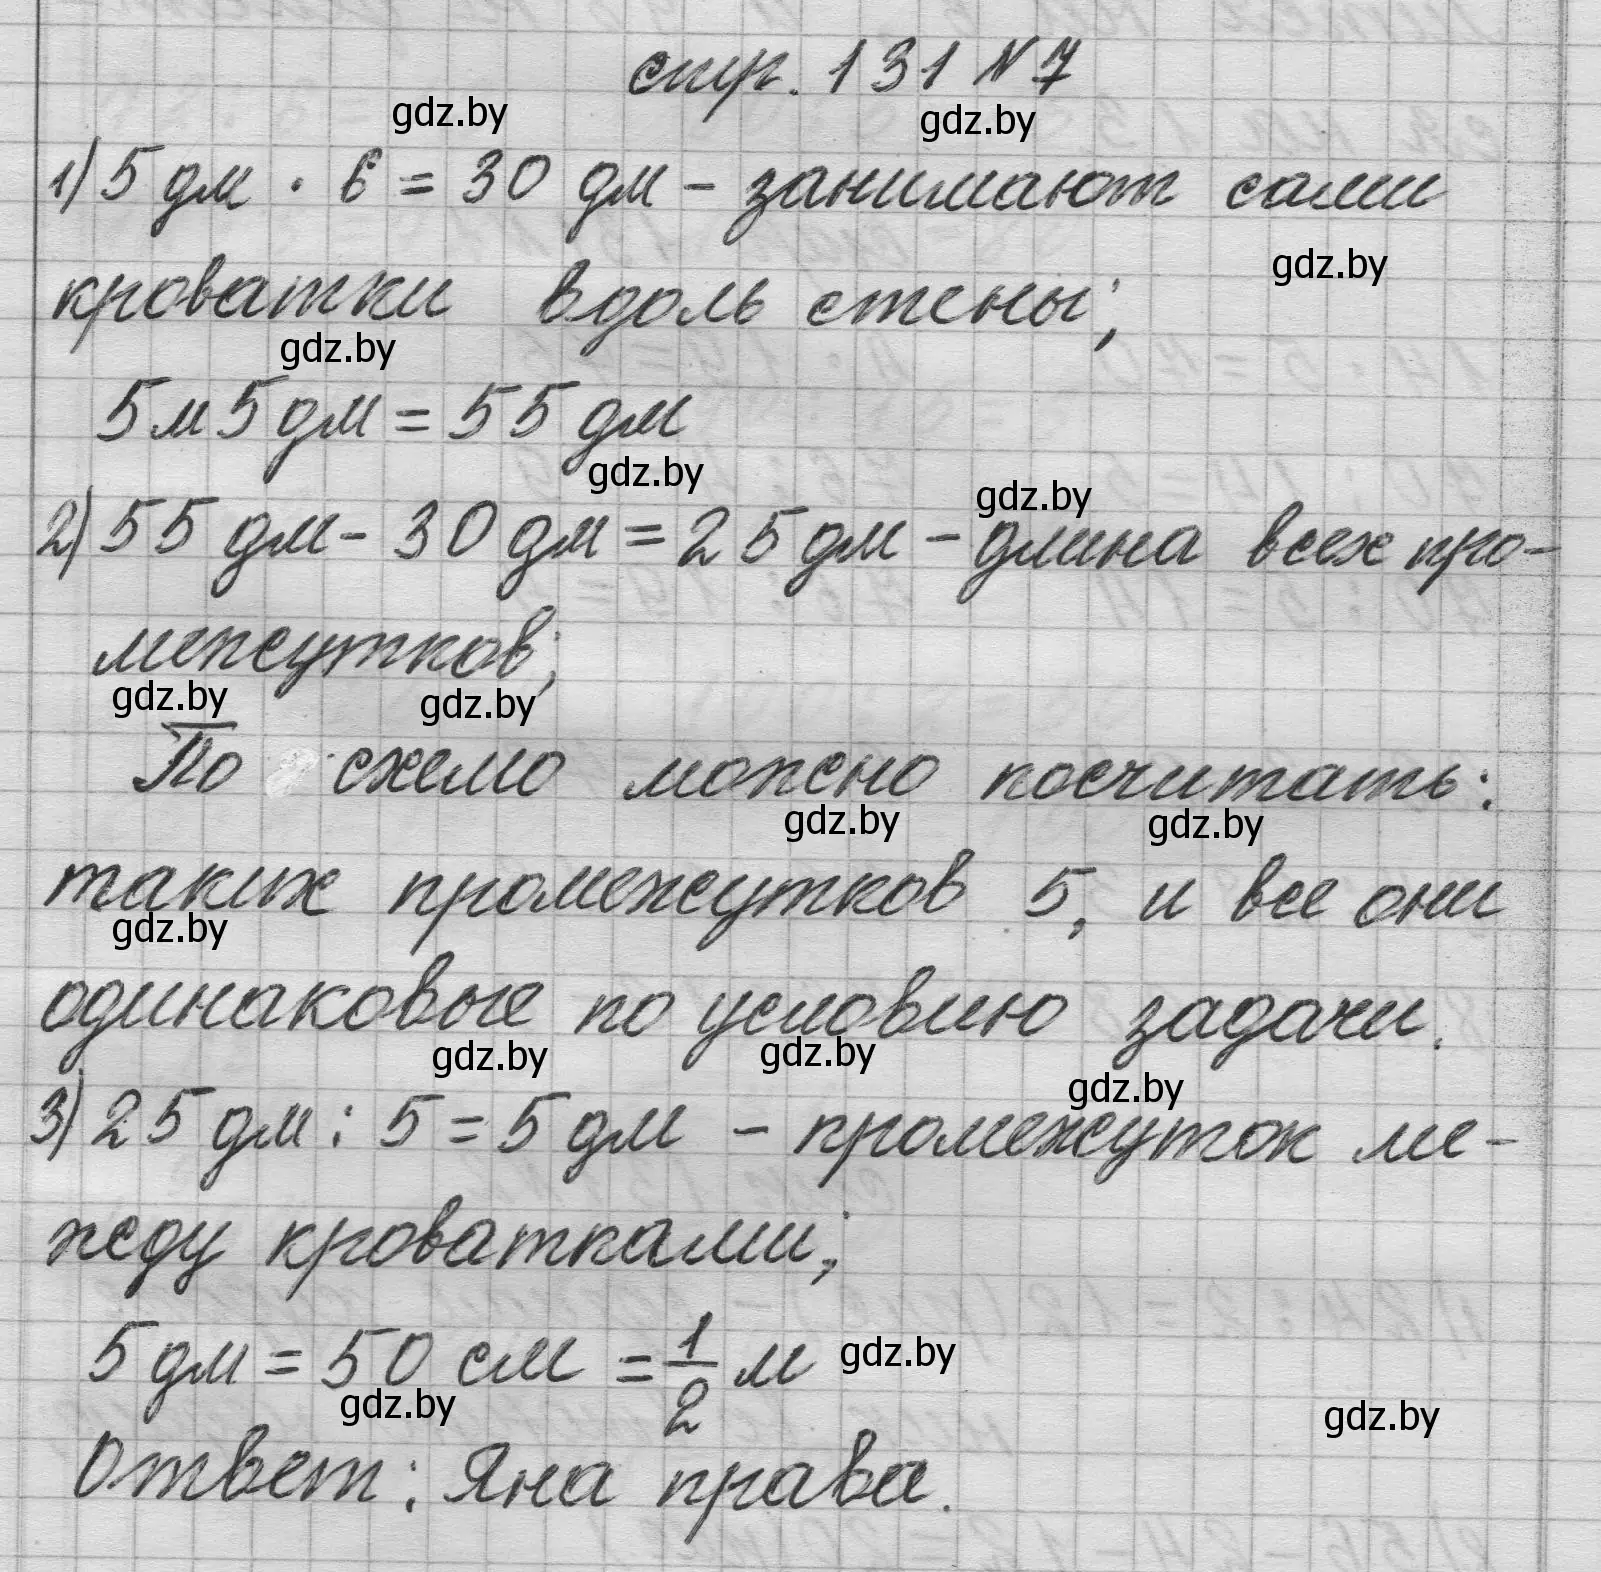 стр. 131 № 7
gdz.by gdz.by
1) 5 дм · 6 = 30 дм - занимают сами
gdz.by
кроватки вдоль стены;
gdz.by
5 м 5 дм = 55 дм
gdz.by gdz.by
2) 55 дм - 30 дм = 25 дм - длина всех про-
межутков;
gdz.by gdz.by
По схемо можно посчитать:
gdz.by gdz.by
таких промежутков 5, и все они
gdz.by
одинаковые по условию задачи.
gdz.by gdz.by gdz.by
3) 25 дм : 5 = 5 дм - промежуток ме-
жеду кроватками;
5 дм = 50 см = 1/2 м gdz.by
gdz.by gdz.by
Ответ: Яна права.